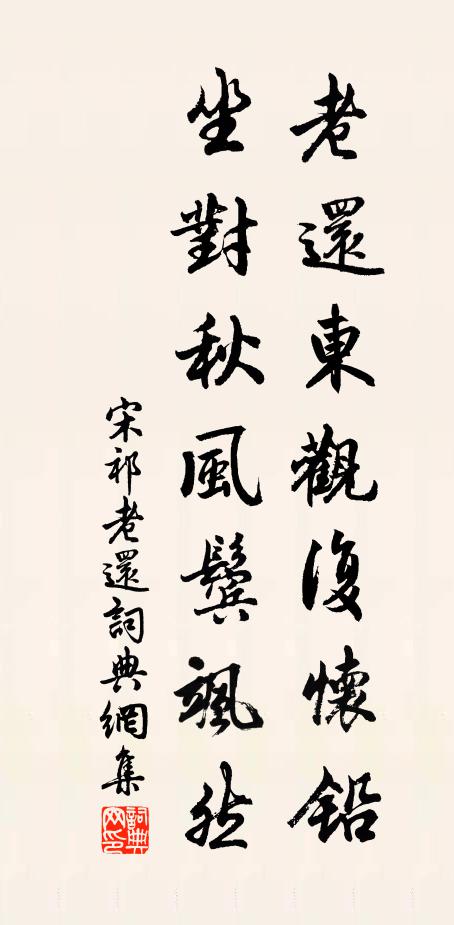 老還東觀復懷鉛
坐對秋風鬢颯然
宋祁老還詞典網集
詞典网印